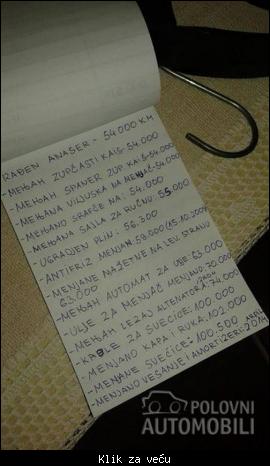 RAĐEN ANLASER - 54 000 KM
- MENJAN ZUPČASTI KAIŠ - 54.000
- MENJAN ŠPANER ZUP. KAIŠ - 54.000
- MENJANA VILJUŠKA NA MENJAČ - 54.000
- MENJANO STAKLO NA: 54.000
- MENJANA SAJLA ZA RUČNU: 55.000
- UGRADJEN PLIN: 56.300
- ANTIFRIZ MENJAN: 59.000 (15.10.2009)
- MENJANE MAŽETNE NA LEV. STRANU
62.000
- MENJAN AUTOMAT ZA 63.000
- ULJE ZA MENJAČ MENJANO: 70.000
- MENJAN LEŽAJ ALTENATORA: 74.000
- KABLE ZA SVEĆICE: 100.000
- MENJANO KAPA I RUKA: 102.000
- MENJANE SVEĆICE: 100.500
- MENJANO VEŠANJE I AMORTIZERI 2014
POLOVNI
AUTOMOBILI
Klik za veću